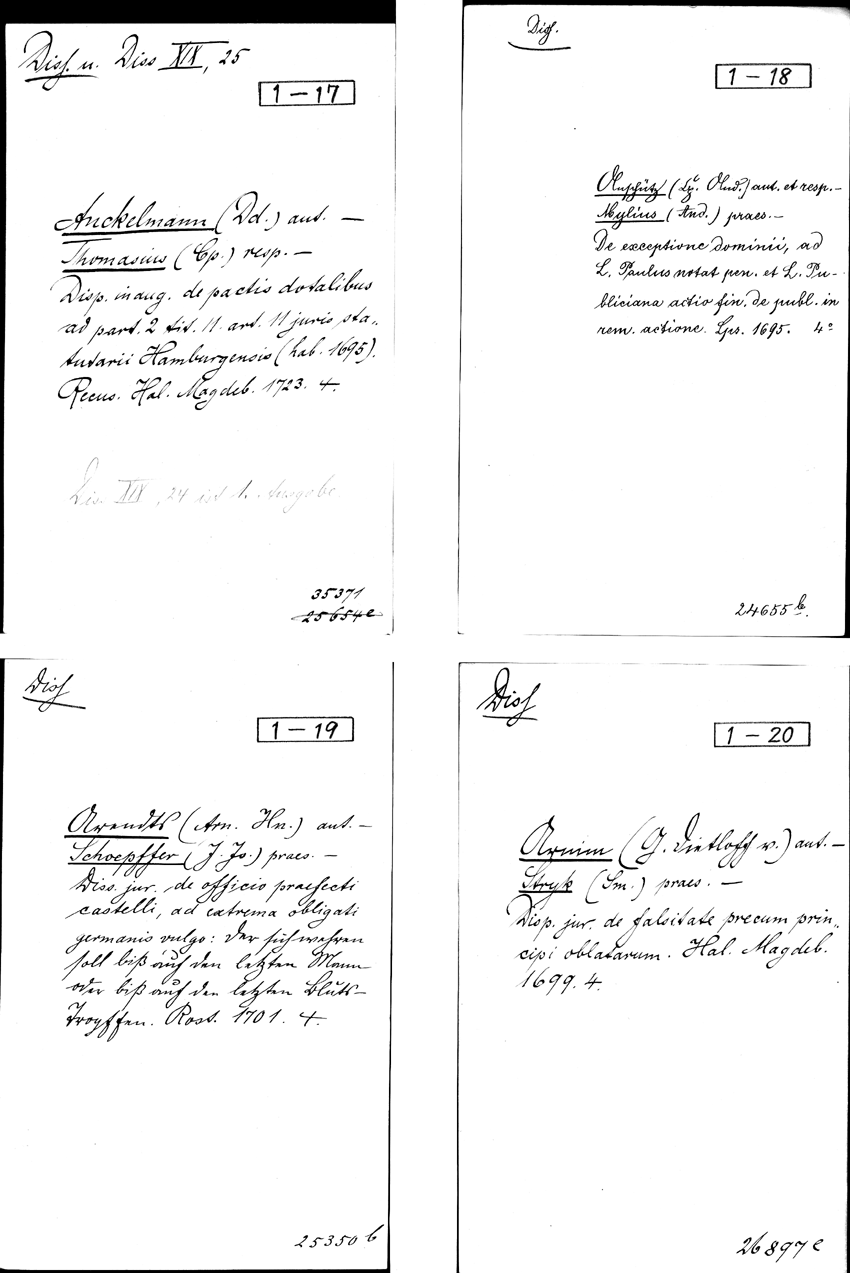 Diss. u. Diss XIX, 25
1 — 17
Anckelmann (Dd.) aut. —
Thomasius (Cp.) resp. —
Disp. inaug. de pactis dotalibus
ad part. 2 tit. 11. art. 11 juris sta„
tutarii Hamburgensis (hab. 1695).
Recus. Hal. Magdeb. 1723. 4.
Dis. XIX, 24 ist 1. Ausgabe.
35371
25654e
Diss.
1 — 18
Anschütz ( And.) aut. et resp. —
Mylius (And.) praes. —
De exceptione dominii, ad
L. Paulus notat pen. et L. Pu-
bliciana actio fin. de publ. in
rem. actione. Lps. 1695. 4°
24655 b.
Diss
1 — 19
Arendts (Arn. Hn.) aut. —
Schoepffer (J. Jo.) praes. —
Diss. jur. de officio praefecti
castelli, ad extrema obligati
germanis vulgo: der sich wehren
soll biß auf den letzten Mann
oder biß auf den letzten Bluts-
Tropffen. Rost. 1701. 4.
25350 b
Diss
1 — 20
Arnim (G. Dietloff v.) aut. —
Stryk (Sm.) praes. —
Disp. jur. de falsitate precum prin„
cipi oblatarum. Hal. Magdeb.
1699. 4.
26897 e